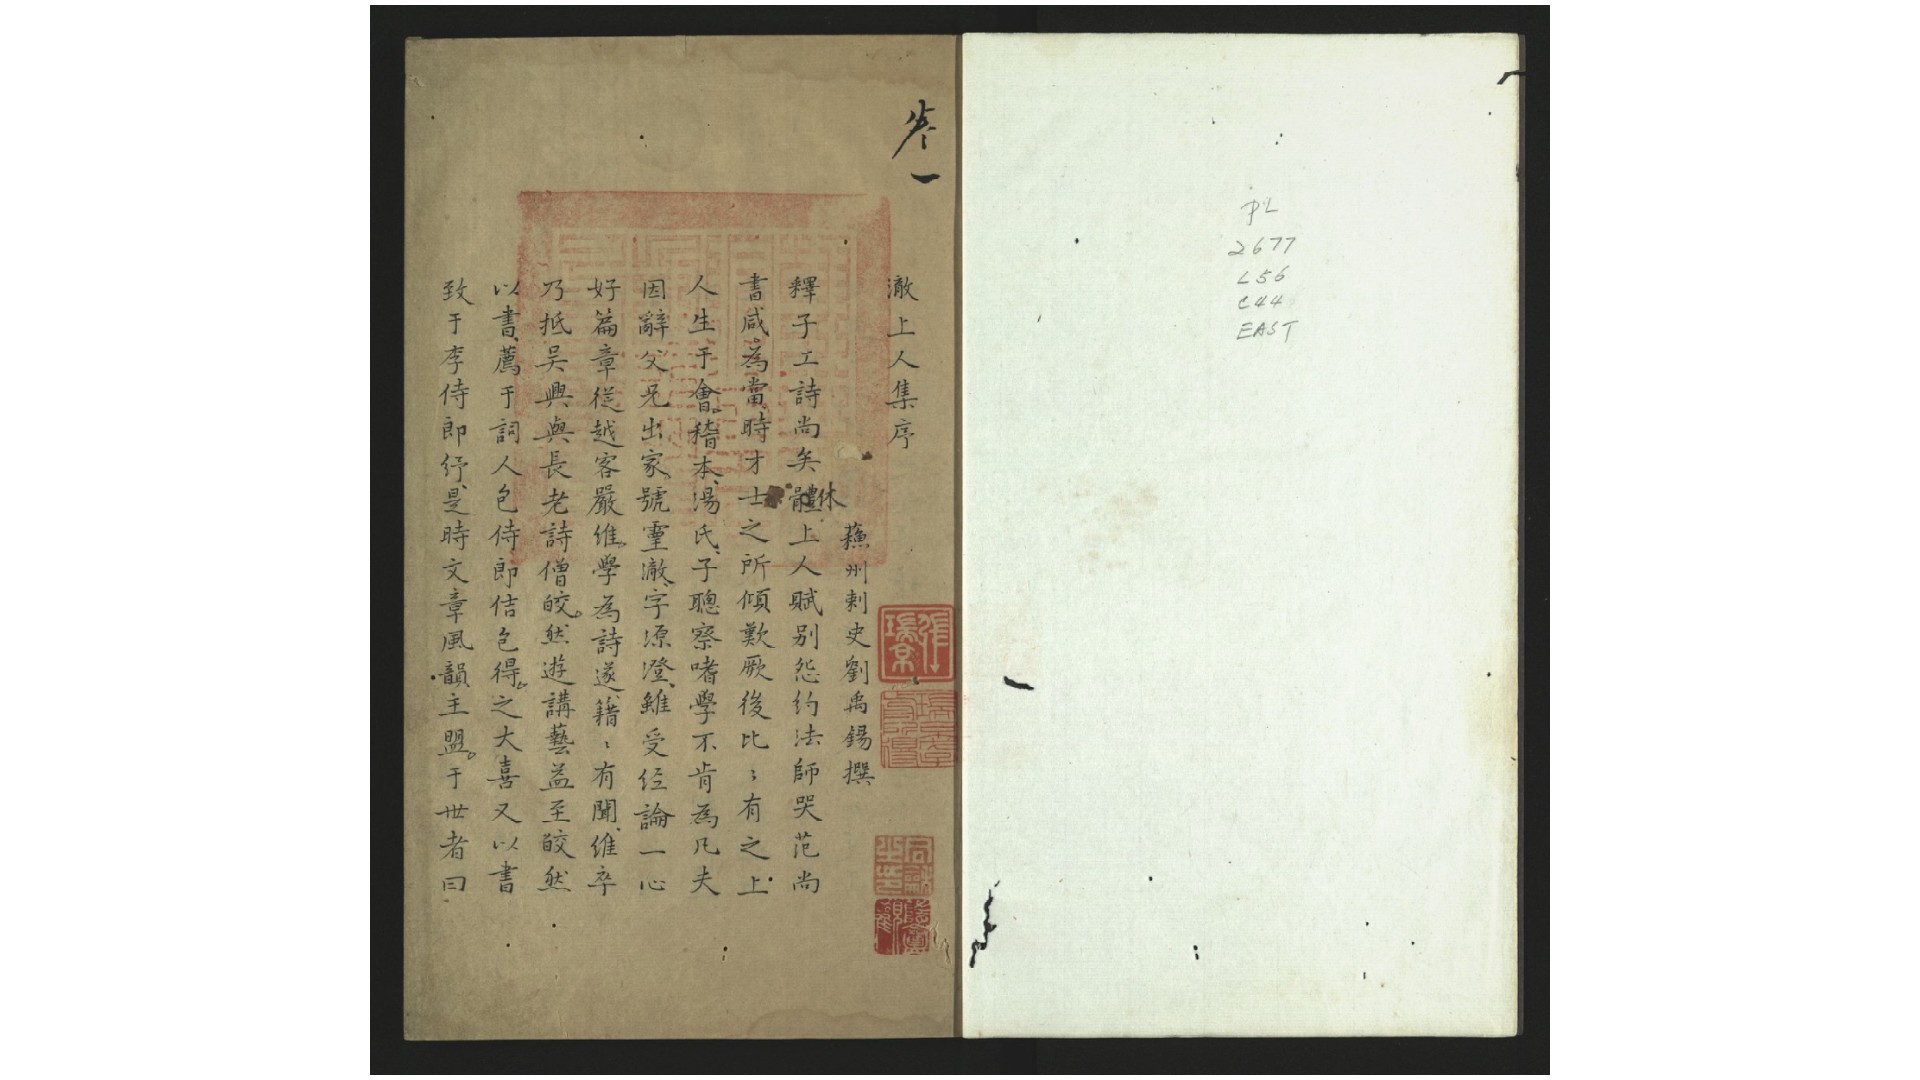 PL
2677
L56
C44
EAST
卷一
澈上人集序
蘓州刺史劉禹錫撰
釋子工詩尚矣體休上人賦别怨約法師哭范尚
書咸為當時才士之所傾歎厥後比〻有之上
人生于會稽本湯氏子聰察嗜學不肯為凡夫
因辭父兄出家號靈澈字源澄雖受經論一心
好篇章從越客嚴維學為詩遂籍〻有聞維卒
乃抵吴興與長老詩僧皎然遊講藝益至皎然
以書薦于詞人包侍郎佶包得之大喜又以書
致于李侍郎纾是時文章風韻主盟于世者曰